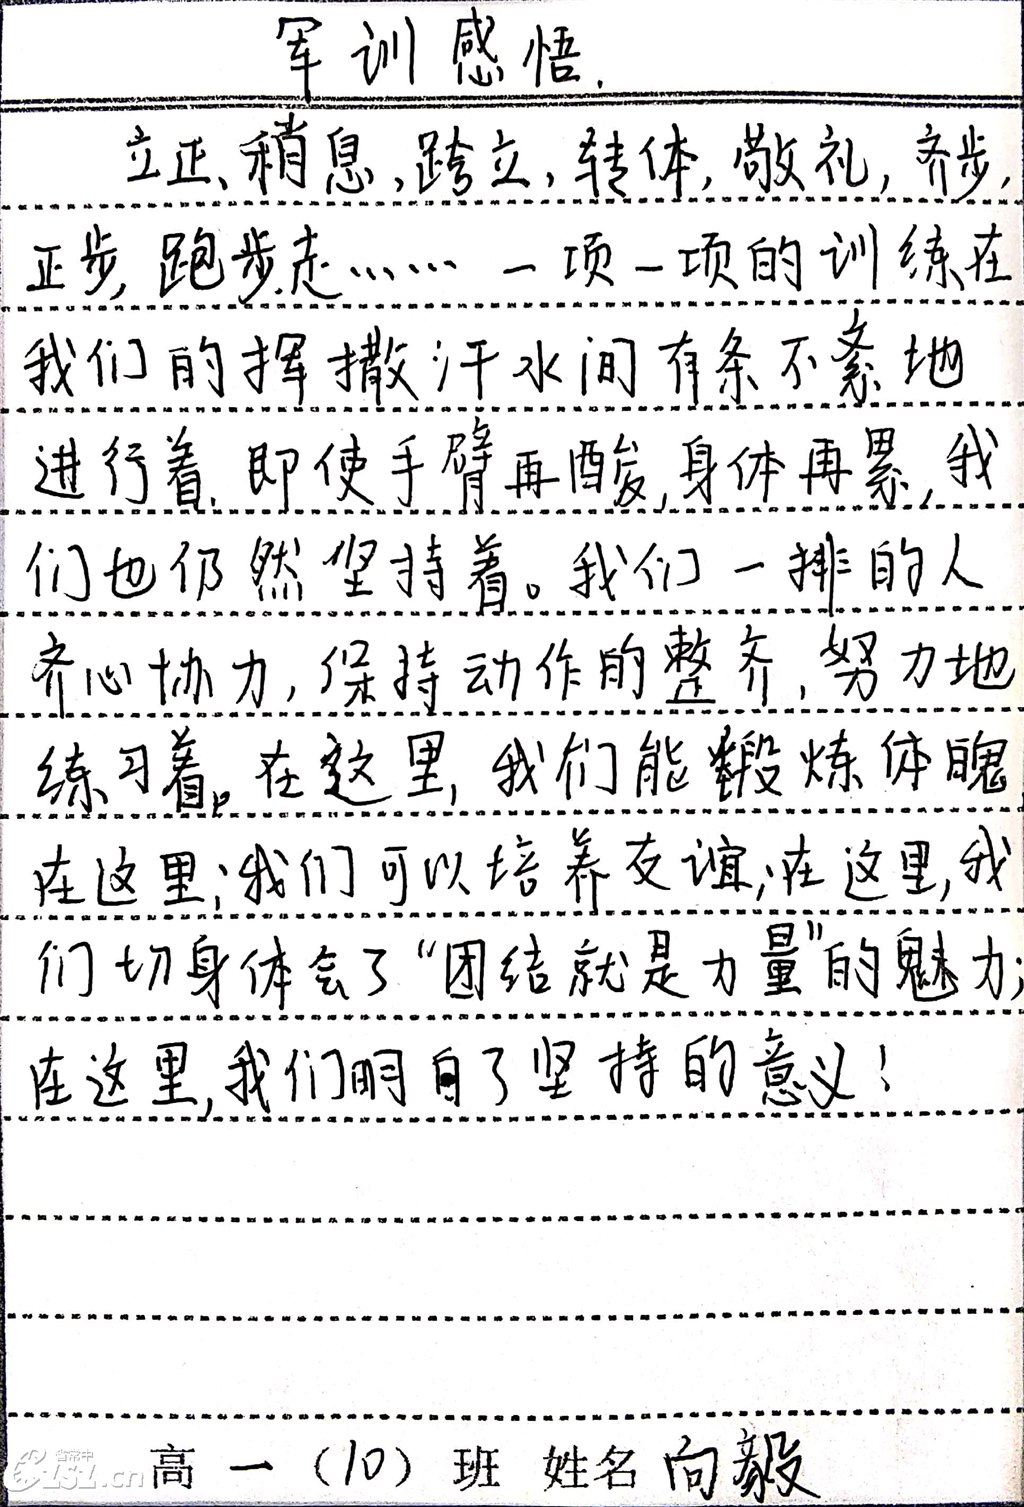 军训感悟.
立正、稍息,跨立,转体,敬礼,齐步,
正步,跑步走……一项一项的训练在
我们的挥撒汗水间有条不紊地
进行着.即使手臂再酸,身体再累,我
们也仍然坚持着。我们一排的人
齐心协力,保持动作的整齐,努力地
练习着。在这里,我们能锻炼体魄
在这里;我们可以培养友谊;在这里,我
们切身体会了“团结就是力量”的魅力;
在这里,我们明白了坚持的意义!
高一(10)班 姓名 向毅
省常中
LSL.cn